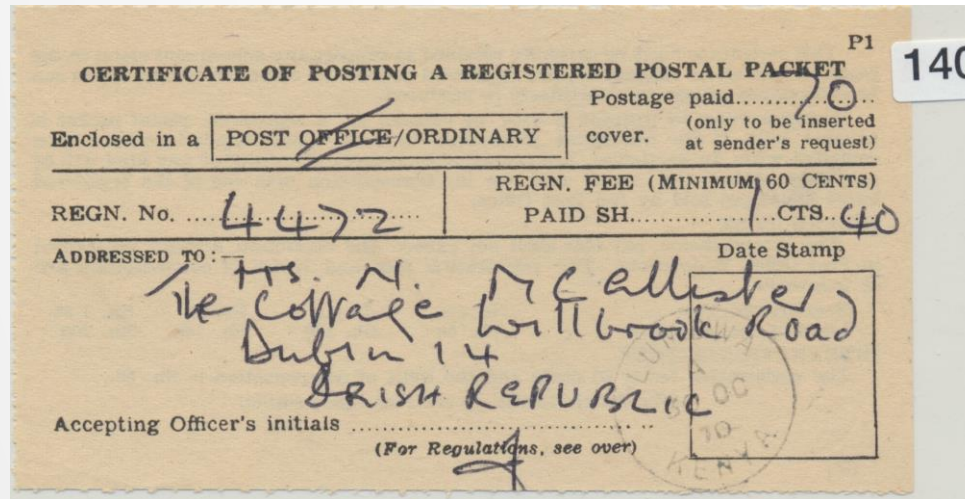 P1
140
CERTIFICATE OF POSTING A REGISTERED POSTAL PACKET
Postage paid..............70
Enclosed in a POST OFFICE/ORDINARY cover. (only to be inserted at sender's request)
REGN. FEE (MINIMUM 60 CENTS)
REGN. No. 4472 PAID SH. 1 CTS. 40
ADDRESSED TO:— Date Stamp
Mrs. N. McCallister
The Cottage Willbrook Road
Dublin 14
IRISH REPUBLIC
Accepting Officer's initials
(For Regulations, see over)
OC
70
KENYA